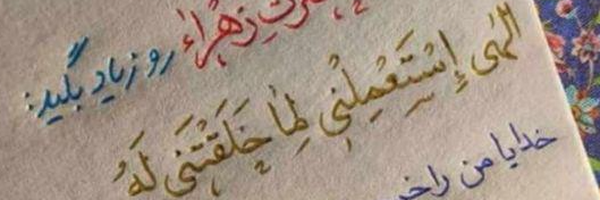 حضرتِ زهراء رو زیاد بگید:
الهی إِسْتَعْمِلْنی لِما خَلَقْتَنی لَهُ
خدایا من را